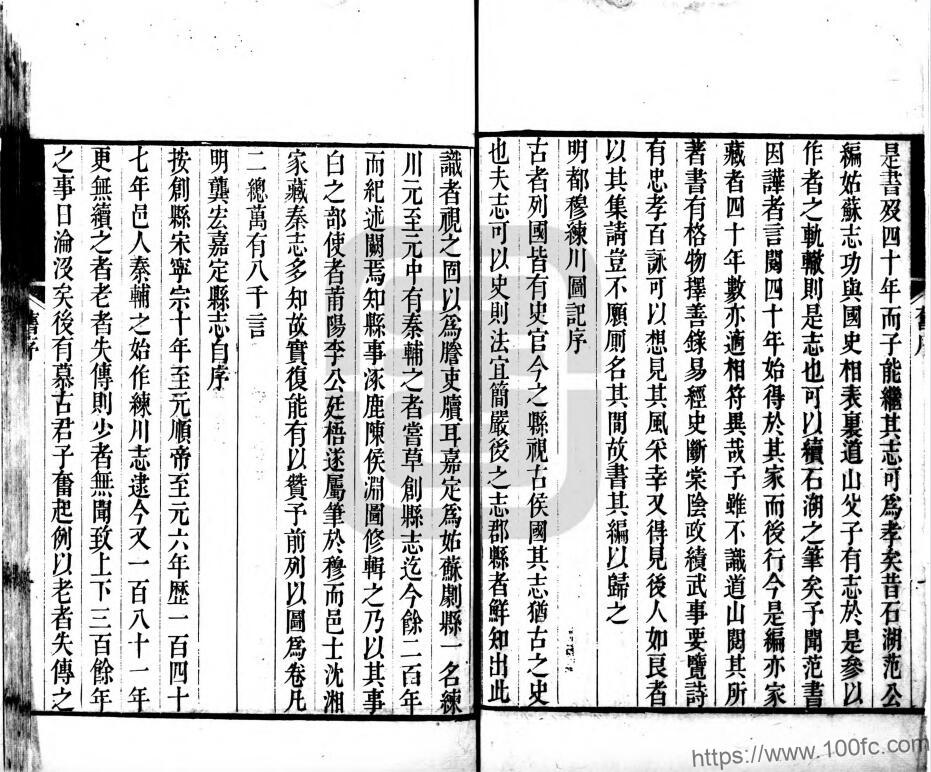 是書歿四十年而子能繼其志可爲孝矣昔石湖范公
編姑蘇志功與國史相表裏道山父子有志於是參以
作者之軌轍則是志也可以續石湖之筆矣予聞范書
因譁者言閱四十年始得於其家而後行今是編亦家
藏者四十年數亦適相符異哉子雖不識道山閱其所
著書有格物擇善錄易經史斷棠陰政績武事要覽詩
有忠孝百詠可以想見其風采幸又得見後人如艮者
以其集請豈不願厠名其間故書其編以歸之
明都穆練川圖記序
古者列國皆有史官今之縣視古侯國其志猶古之史
也夫志可以史則法宜簡嚴後之志郡縣者鮮知出此
舊序
識者視之固以爲謄吏牘耳嘉定爲姑蘇劇縣一名練
川元至元中有秦輔之者嘗草創縣志迄今餘二百年
而紀述闕焉知縣事涿鹿陳侯淵圖修輯之乃以其事
白之部使者莆陽李公廷梧遂屬筆於穆而邑士沈湘
家藏秦志多知故實復能有以贊予前列以圖爲卷凡
二總萬有八千言
明龔宏嘉定縣志自序
按創縣宋寧宗十年至元順帝至元六年歷一百四十
七年邑人秦輔之始作練川志逮今又一百八十一年
更無續之者老者失傳則少者無聞致上下三百餘年
之事日淪沒矣後有慕古君子奮起例以老者失傳之
舊序
https://www.100fc.com